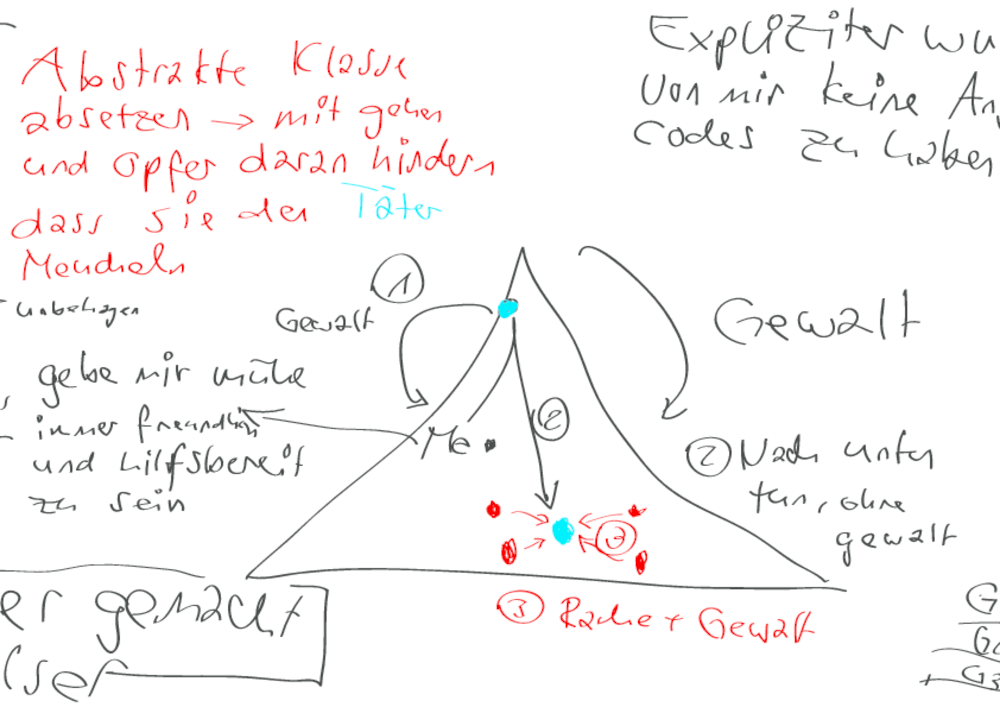 Abstrakte Klasse
absetzen → mit gehen
und opfer daran hindern
dass sie den Täter
Meucheln
Expliziter wu
von mir keine An
codes zu haben
unbehagen
①
Gewalt
Gewalt
gebe mir mühe
immer freundlich
und hilfsbereit
zu sein
Me
②
② Nach unten
tun, ohne
gewalt
③
③ Rache + Gewalt
er gemacht
G
G2
+ G3